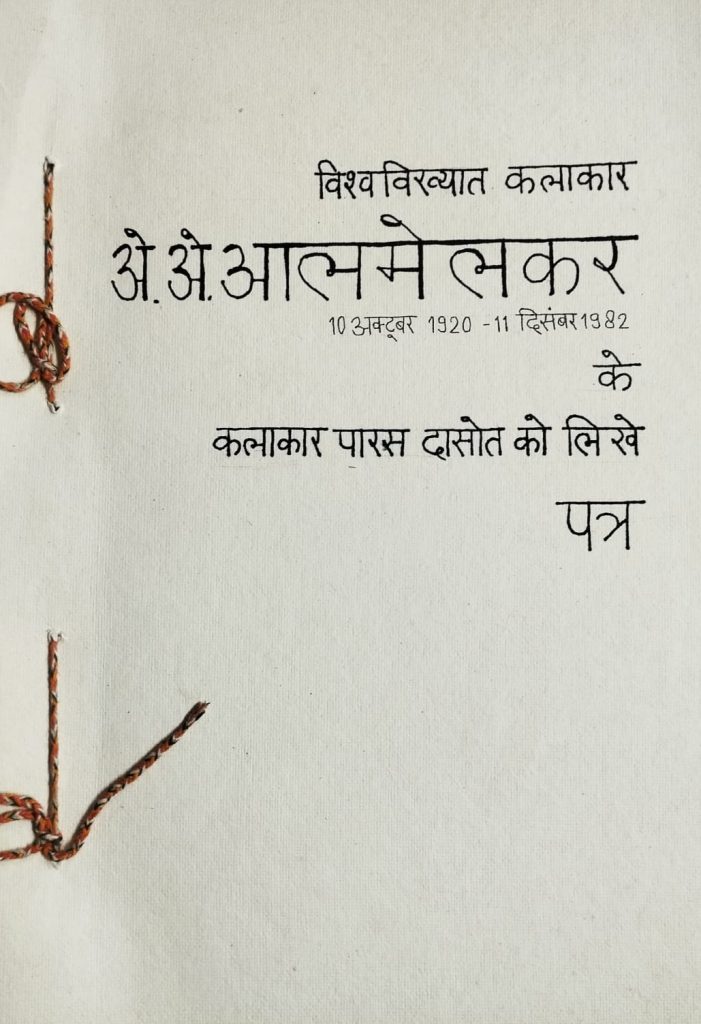 विश्वविख्यात कलाकार
अे.अे.आलमेलकर
10 अक्टूबर 1920 -11 दिसंबर 1982
के
कलाकार पारस दासोत को लिखे
पत्र